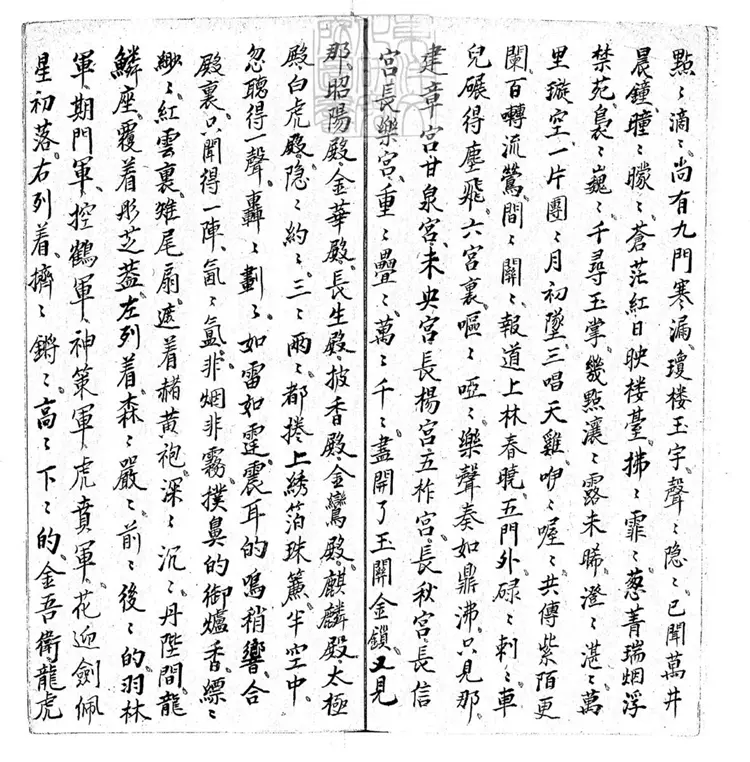 點〻滴〻尚有九門寒漏瓊楼玉宇聲〻隐〻已聞萬井
晨鐘曈〻曚〻蒼茫紅日映楼臺拂〻霏〻葱菁瑞烟浮
禁苑裊〻巍〻千尋玉掌幾點瀼〻露未晞澄〻湛〻萬
里璇空一片團〻月初墜三唱天雞咿〻喔〻共傳紫陌更
闌百囀流鶯間〻關〻報道上林春曉五門外碌〻剌〻車
兒碾得塵飛六宮裏嘔〻啞〻樂聲奏如鼎沸只見那
建章宮甘泉宮未央宮長楊宮五柞宮長秋宮長信
宮長樂宮重〻疊〻萬〻千〻盡開了玉關金鎖又見
那昭陽殿金華殿長生殿披香殿金鸞殿麒麟殿太極
殿白虎殿隐〻約〻三〻兩〻都捲上綉箔珠簾半空中
忽聽得一聲轟〻劃〻如雷如霆震耳的鳴稍響合
殿裏只聞得一陣氤〻氲〻非烟非霧撲鼻的御爐香縹〻
緲〻紅雲裏雉尾扇遮着赭黄袍深〻沉〻丹陛間龍
鱗座覆着彤芝葢左列着森〻嚴〻前〻後〻的羽林
軍期門軍控鶴軍神策軍虎賁軍花迎劍佩
星初落右列着擠〻鏘〻高〻下〻的金吾衛龍虎